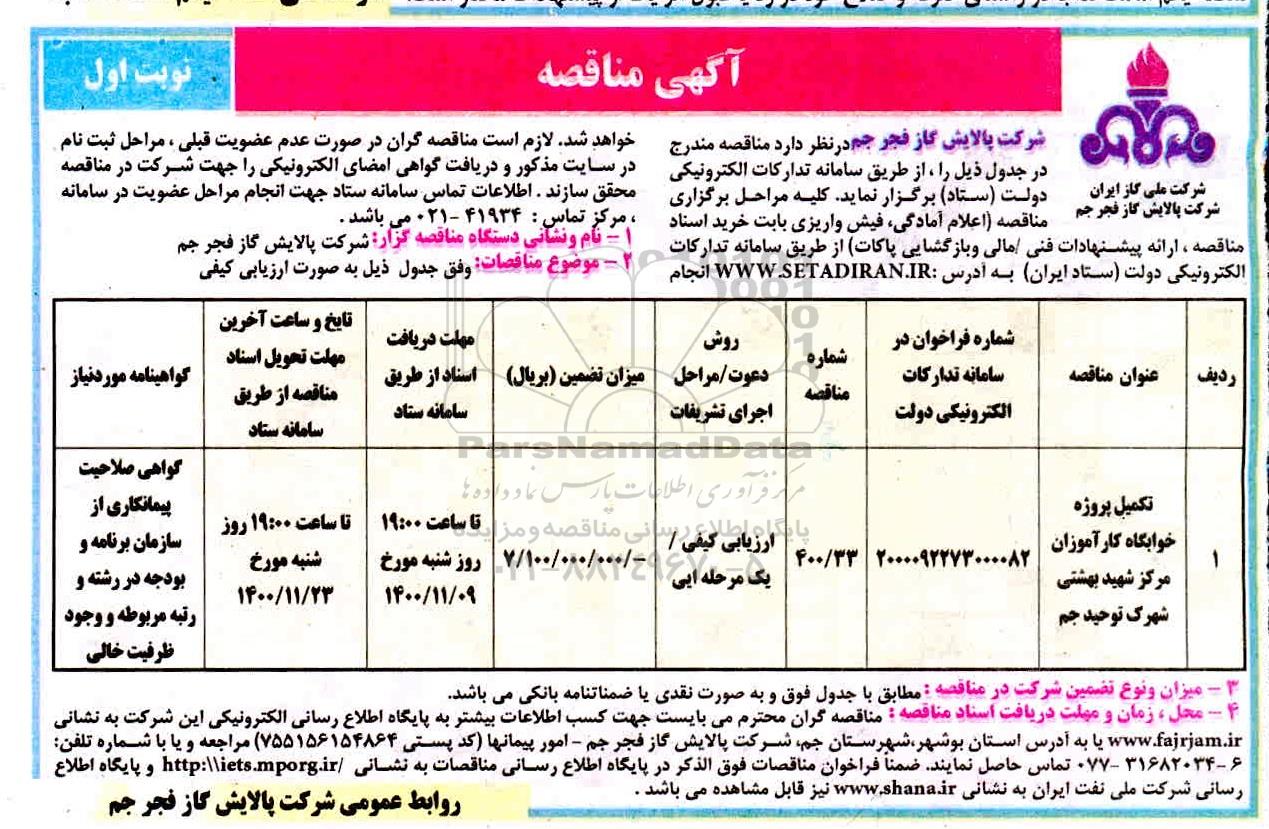 آگهی مناقصه
نوبت اول
شرکت ملی گاز ایران
شرکت پالایش گاز فجر جم
شرکت پالایش گاز فجر جم درنظر دارد مناقصه مندرج
در جدول ذیل را ، از طریق سامانه تدارکات الکترونیکی
دولت (ستاد) برگزار نماید. کلیه مراحل برگزاری
مناقصه (اعلام آمادگی، فیش واریزی بابت خرید اسناد
مناقصه ، ارائه پیشنهادات فنی /مالی وبازگشایی پاکات) از طریق سامانه تدارکات
الکترونیکی دولت (ستاد ایران) به آدرس :WWW.SETADIRAN.IR انجام
خواهد شد. لازم است مناقصه گران در صورت عدم عضویت قبلی ، مراحل ثبت نام
در سایت مذکور و دریافت گواهی امضای الکترونیکی را جهت شرکت در مناقصه
محقق سازند . اطلاعات تماس سامانه ستاد جهت انجام مراحل عضویت در سامانه
، مرکز تماس : ۴۱۹۳۴ -۰۲۱ می باشد .
۱ – نام ونشانی دستگاه مناقصه گزار: شرکت پالایش گاز فجر جم
۲ – موضوع مناقصات: وفق جدول ذیل به صورت ارزیابی کیفی
ردیف
عنوان مناقصه
شماره فراخوان در
سامانه تدارکات
الکترونیکی دولت
شماره
مناقصه
روش
دعوت/مراحل
اجرای تشریفات
میزان تضمین (بریال)
مهلت دریافت
اسناد از طریق
سامانه ستاد
تایخ و ساعت آخرین
مهلت تحویل اسناد
مناقصه از طریق
سامانه ستاد
گواهینامه موردنیاز
۱
تکمیل پروژه
خوابگاه کارآموزان
مرکز شهید بهشتی
شهرک توحید جم
۲۰۰۰۰۹۲۲۷۳۰۰۰۰۸۲
۴۰۰/۳۳
ارزیابی کیفی /
یک مرحله ایی
۷/۱۰۰/۰۰۰/۰۰۰/-
تا ساعت ۱۹:۰۰
روز شنبه مورخ
۱۴۰۰/۱۱/۰۹
تا ساعت ۱۹:۰۰ روز
شنبه مورخ
۱۴۰۰/۱۱/۲۳
گواهی صلاحیت
پیمانکاری از
سازمان برنامه و
بودجه در رشته و
رتبه مربوطه و وجود
ظرفیت خالی
۳ – میزان ونوع تضمین شرکت در مناقصه : مطابق با جدول فوق و به صورت نقدی یا ضمانتنامه بانکی می باشد.
۴ – محل ، زمان و مهلت دریافت اسناد مناقصه : مناقصه گران محترم می بایست جهت کسب اطلاعات بیشتر به پایگاه اطلاع رسانی الکترونیکی این شرکت به نشانی
www.fajrjam.ir یا به آدرس استان بوشهر،شهرستان جم، شرکت پالایش گاز فجر جم - امور پیمانها (کد پستی ۷۵۵۱۵۶۱۵۴۸۶۴) مراجعه و یا با شماره تلفن:
۶ -۳۱۶۸۲۰۳۴ -۰۷۷ تماس حاصل نمایند. ضمناً فراخوان مناقصات فوق الذکر در پایگاه اطلاع رسانی مناقصات به نشانی http:\\iets.mporg.ir/ و پایگاه اطلاع
رسانی شرکت ملی نفت ایران به نشانی www.shana.ir نیز قابل مشاهده می باشد .
روابط عمومی شرکت پالایش گاز فجر جم
ParsNamadData
مرکز فرآوری اطلاعات پارس نماد داده ها
پایگاه اطلاع رسانی مناقصه و مزایده
۰۲۱-۸۸۳۴۹۶۷۰-۵